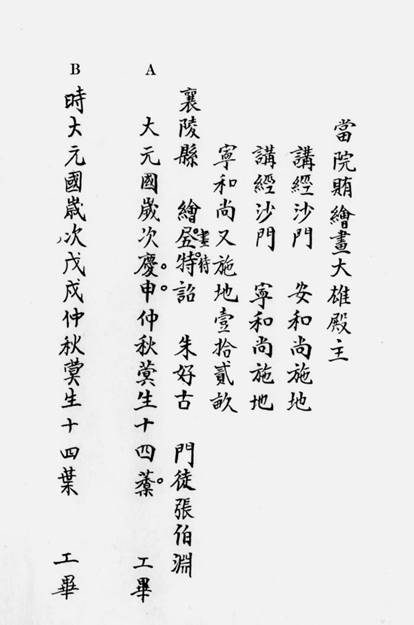 當院賄繪畫大雄殿主
講經沙門 安和尚施地
講經沙門 寧和尚施地
寧和尚又施地壹拾貳畝
襄陵縣 繪登特詔 朱好古 門徒張伯淵
畫待
A 大元國歲次慶申仲秋蓂生十四藁 工畢
B 時大元國歲次戊戌仲秋蓂生十四葉 工畢